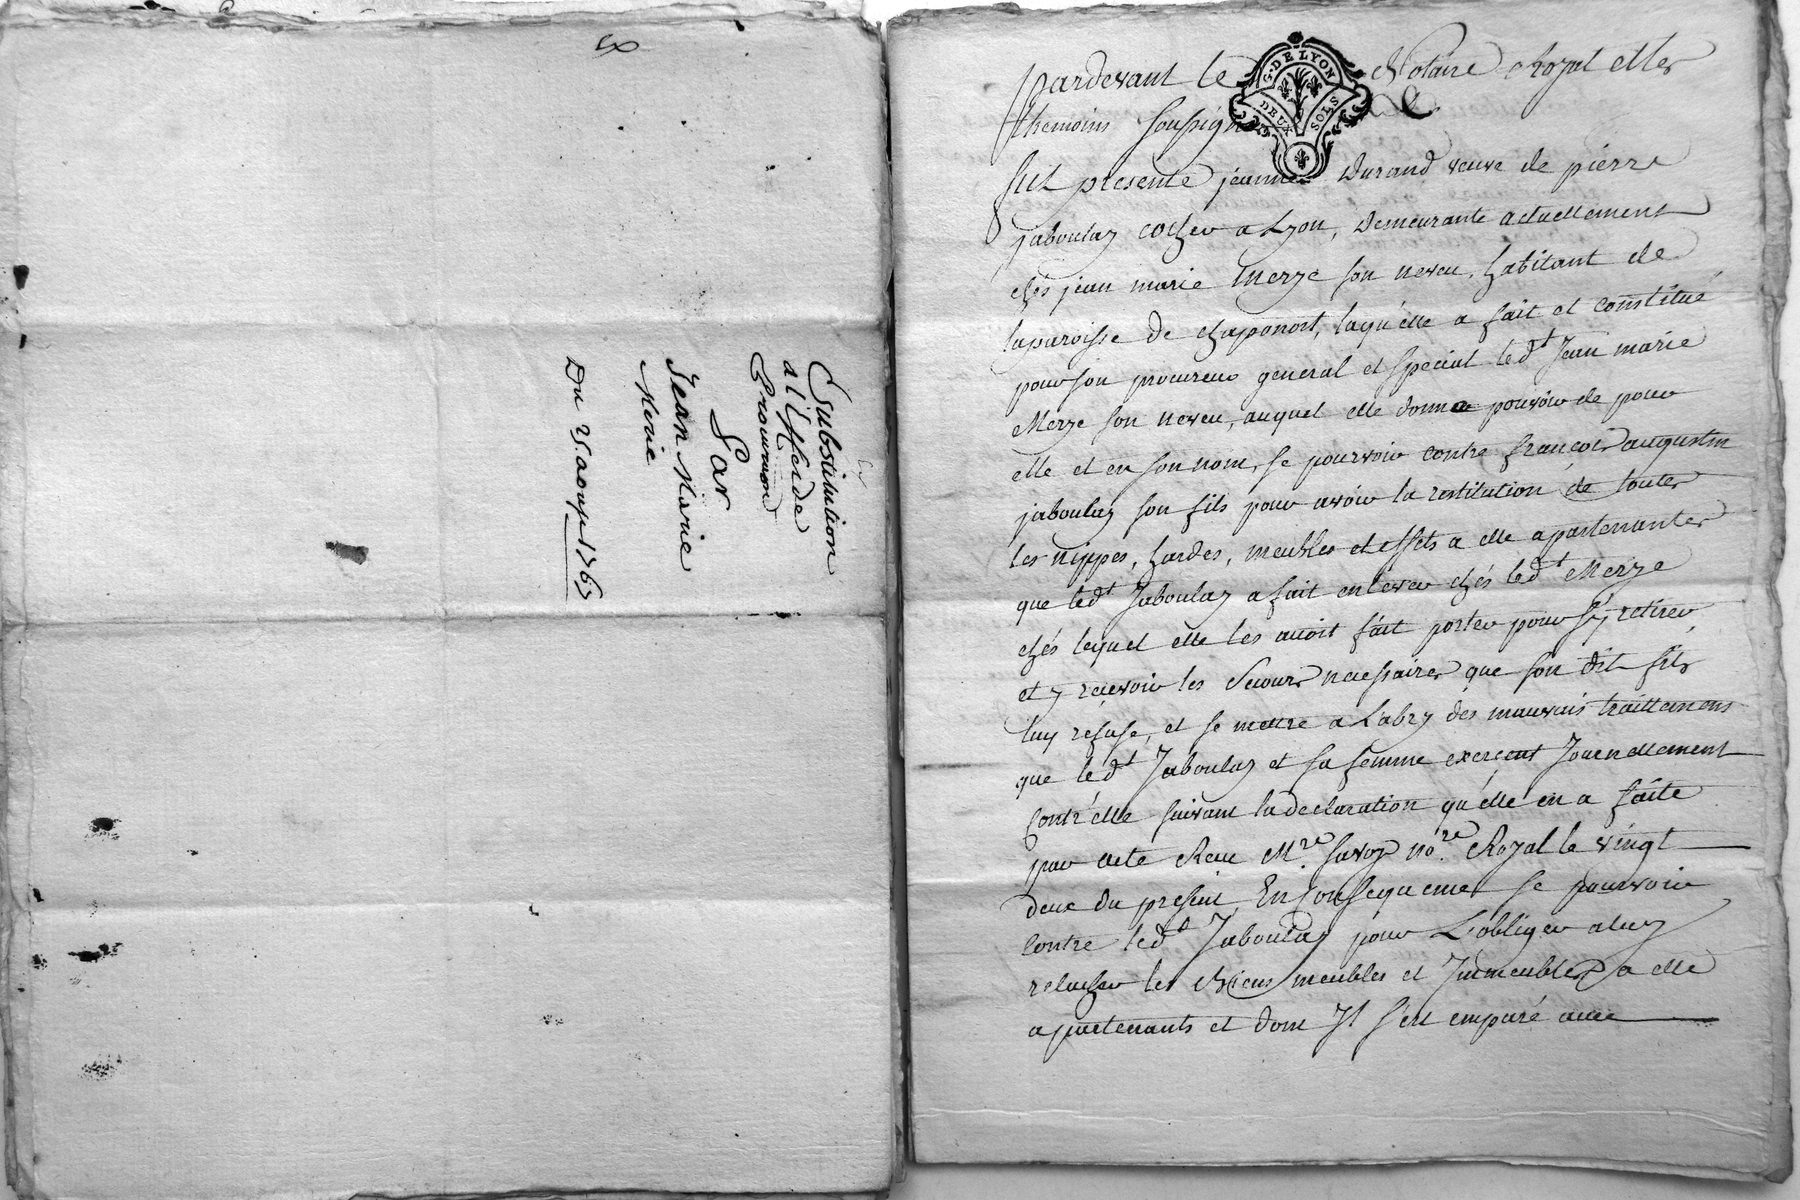 Substitution
a l'Effet de
Procuration
Par
Jean Marie
Merie
Du 25 aoust 1765
G. DE LYON
DEUX SOLS
pardevant le Notaire Royal et les
themoins soussignés
fut presente jeanne Durand veuve de pierre
jaboulay cocher a Lyon, demeurante actuellement
chés jean marie merze son neveu, habitant de
laparoisse de chaponost, laquelle a fait et constitué
pour son procureur general et special led.t Jean marie
Merze son neveu, auquel elle donne pouvoir de pour
elle et en son nom, se pourvoir contre françois augustin
jaboulay son fils pour avoir la restitution de toutes
les nippes, hardes, meubles et effets a elle apartenantes
que led.t Jaboulay a fait enlever chés led.t Merze
chés lequel elle les avoit fait porter pour s'y retirer,
et y recevoir les secours necessaires que son dit fils
luy refuse, et se mettre a L'abry des mauvais traittemens
que led.t Jaboulay et sa femme exerçent Journellement
contr'elle suivant la declaration qu'elle en a faite
par acte Receu M.re savoy no.re Royal le vingt
deux du present, En consequence se pourvoir
contre led.t Jaboulay pour L'obliger a luy
relacher les Biens meubles et Immeubles a elle
apartenants et dont Il s'est emparé avec